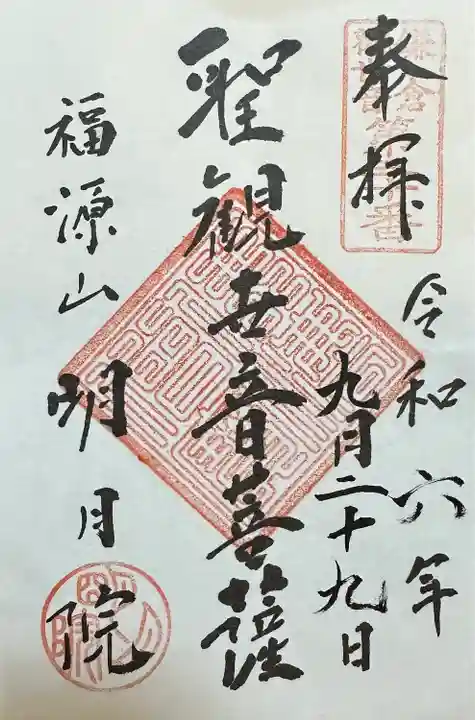 奉拝
令和六年
九月二十九日
聖観世音菩薩
福源山明月院